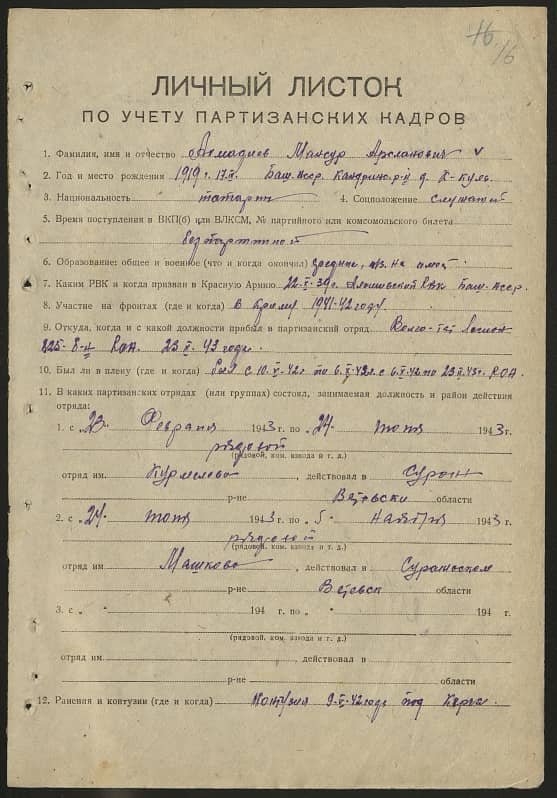 16
16
ЛИЧНЫЙ ЛИСТОК
ПО УЧЕТУ ПАРТИЗАНСКИХ КАДРОВ
1. Фамилия, имя и отчество Ахмадиев Мансур Арсланович v
2. Год и место рождения 1919 г. Баш. Асср. д. К-куль
3. Национальность татарин 4. Соцположение служащий
5. Время поступления в ВКП(б) или ВЛКСМ, № партийного или комсомольского билета
безпартийной
6. Образование: общее и военное (что и когда окончил) среднее,
7. Каким РВК и когда призван в Красную Армию РВК Баш. Асср.
8. Участие на фронтах (где и когда) в Крыму 1941-42 году
9. Откуда, когда и с какой должности прибыл в партизанский отряд Волго-тат Легион
825- б-н РОА. 23 II 43 года.
10. Был ли в плену (где и когда) Был с РОА.
11. В каких партизанских отрядах (или группах) состоял, занимаемая должность и район действия
отряда:
1. с 23 Февраля 1943 г. по 24 июня 1943 г.
рядовой
(рядовой, ком. взвода и т. д.)
отряд им. Курмелева, действовал в Сураж
р-не Ветевски области
2. с 24 июня 1943 г. по 5 ноября 1943 г.
рядовой
(рядовой, ком. взвода и т. д.)
отряд им. Машкова, действовал в Суражском
р-не Ветевск области
3. с 194 г. по 194 г.
(рядовой, ком. взвода и т. д.)
отряд им. , действовал в
р-не области
12. Ранения и контузии (где и когда) контузия 42 года под Керчи.